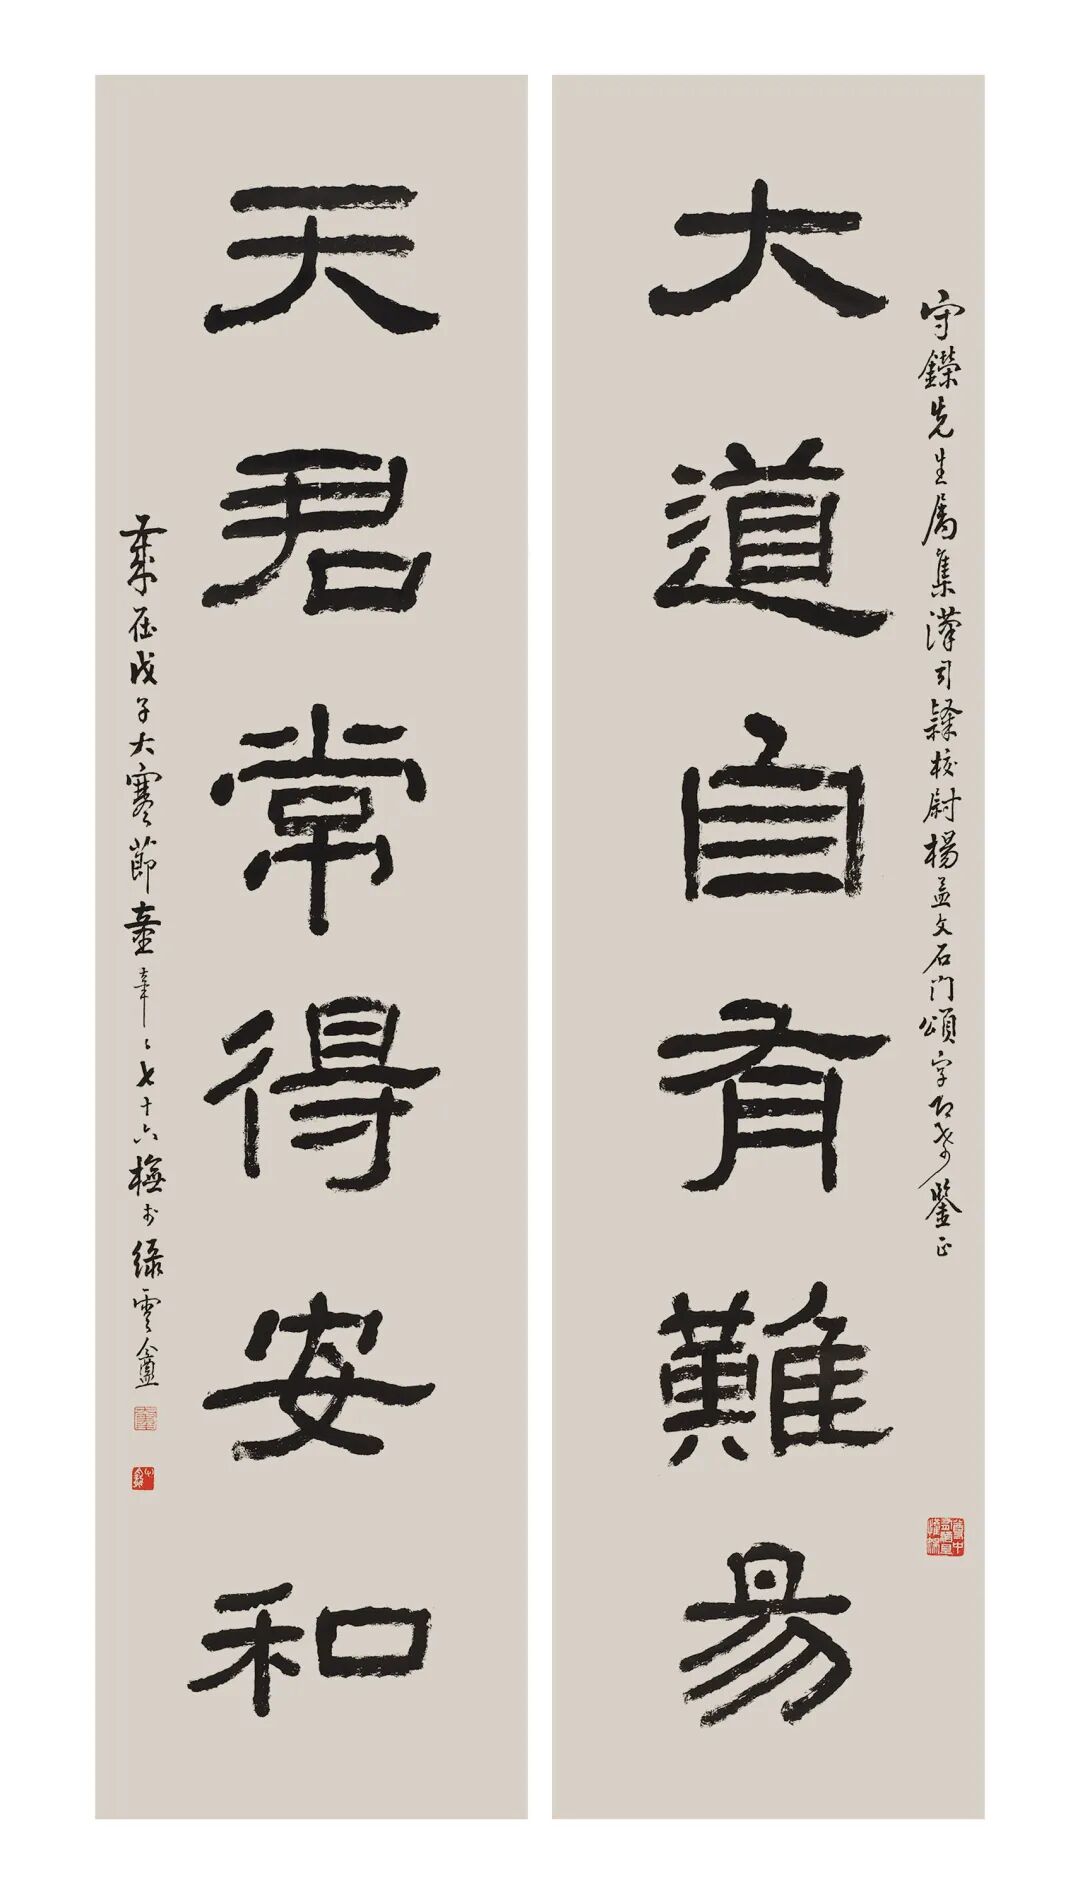 大道自有難易
守鑅先生属集漢司隸校尉楊孟文石門頌字即希鑒正
天君常得安和
歲在戊子大寒節童 七十六 於綠雲盦